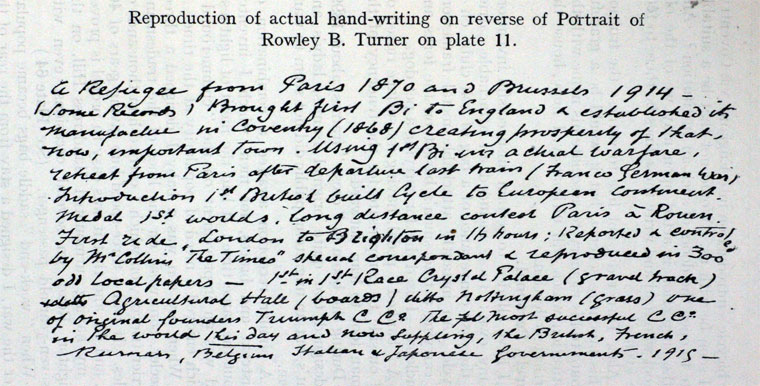 Reproduction of actual hand-writing on reverse of Portrait of
Rowley B. Turner on plate 11.
A Refugee from Paris 1870 and Brussels 1914 —
(Some Records) Brought first Bi to England & established its
manufacture in Coventry (1868) creating prosperity of that,
now, important town. Using 1st Bi in actual warfare,
retreat from Paris after departure last train (Franco German War)
Introduction 1st British built Cycle to European Continent.
Medal 1st worlds, long distance contest Paris à Rouen.
First ride, London to Brighton in hours; Reported & controlled
by Mr Collins "The Times" special correspondent & reproduced in 300
odd local papers — 1st in 1st Race Crystal Palace (gravel track)
ditto Agricultural Hall (boards) ditto Nottingham (grass) one
of original founders Triumph C Co. The most successful C Co.
in the world this day and now supplying, the British, French,
Russian, Belgium Italian & Japanese Governments. 1915 —